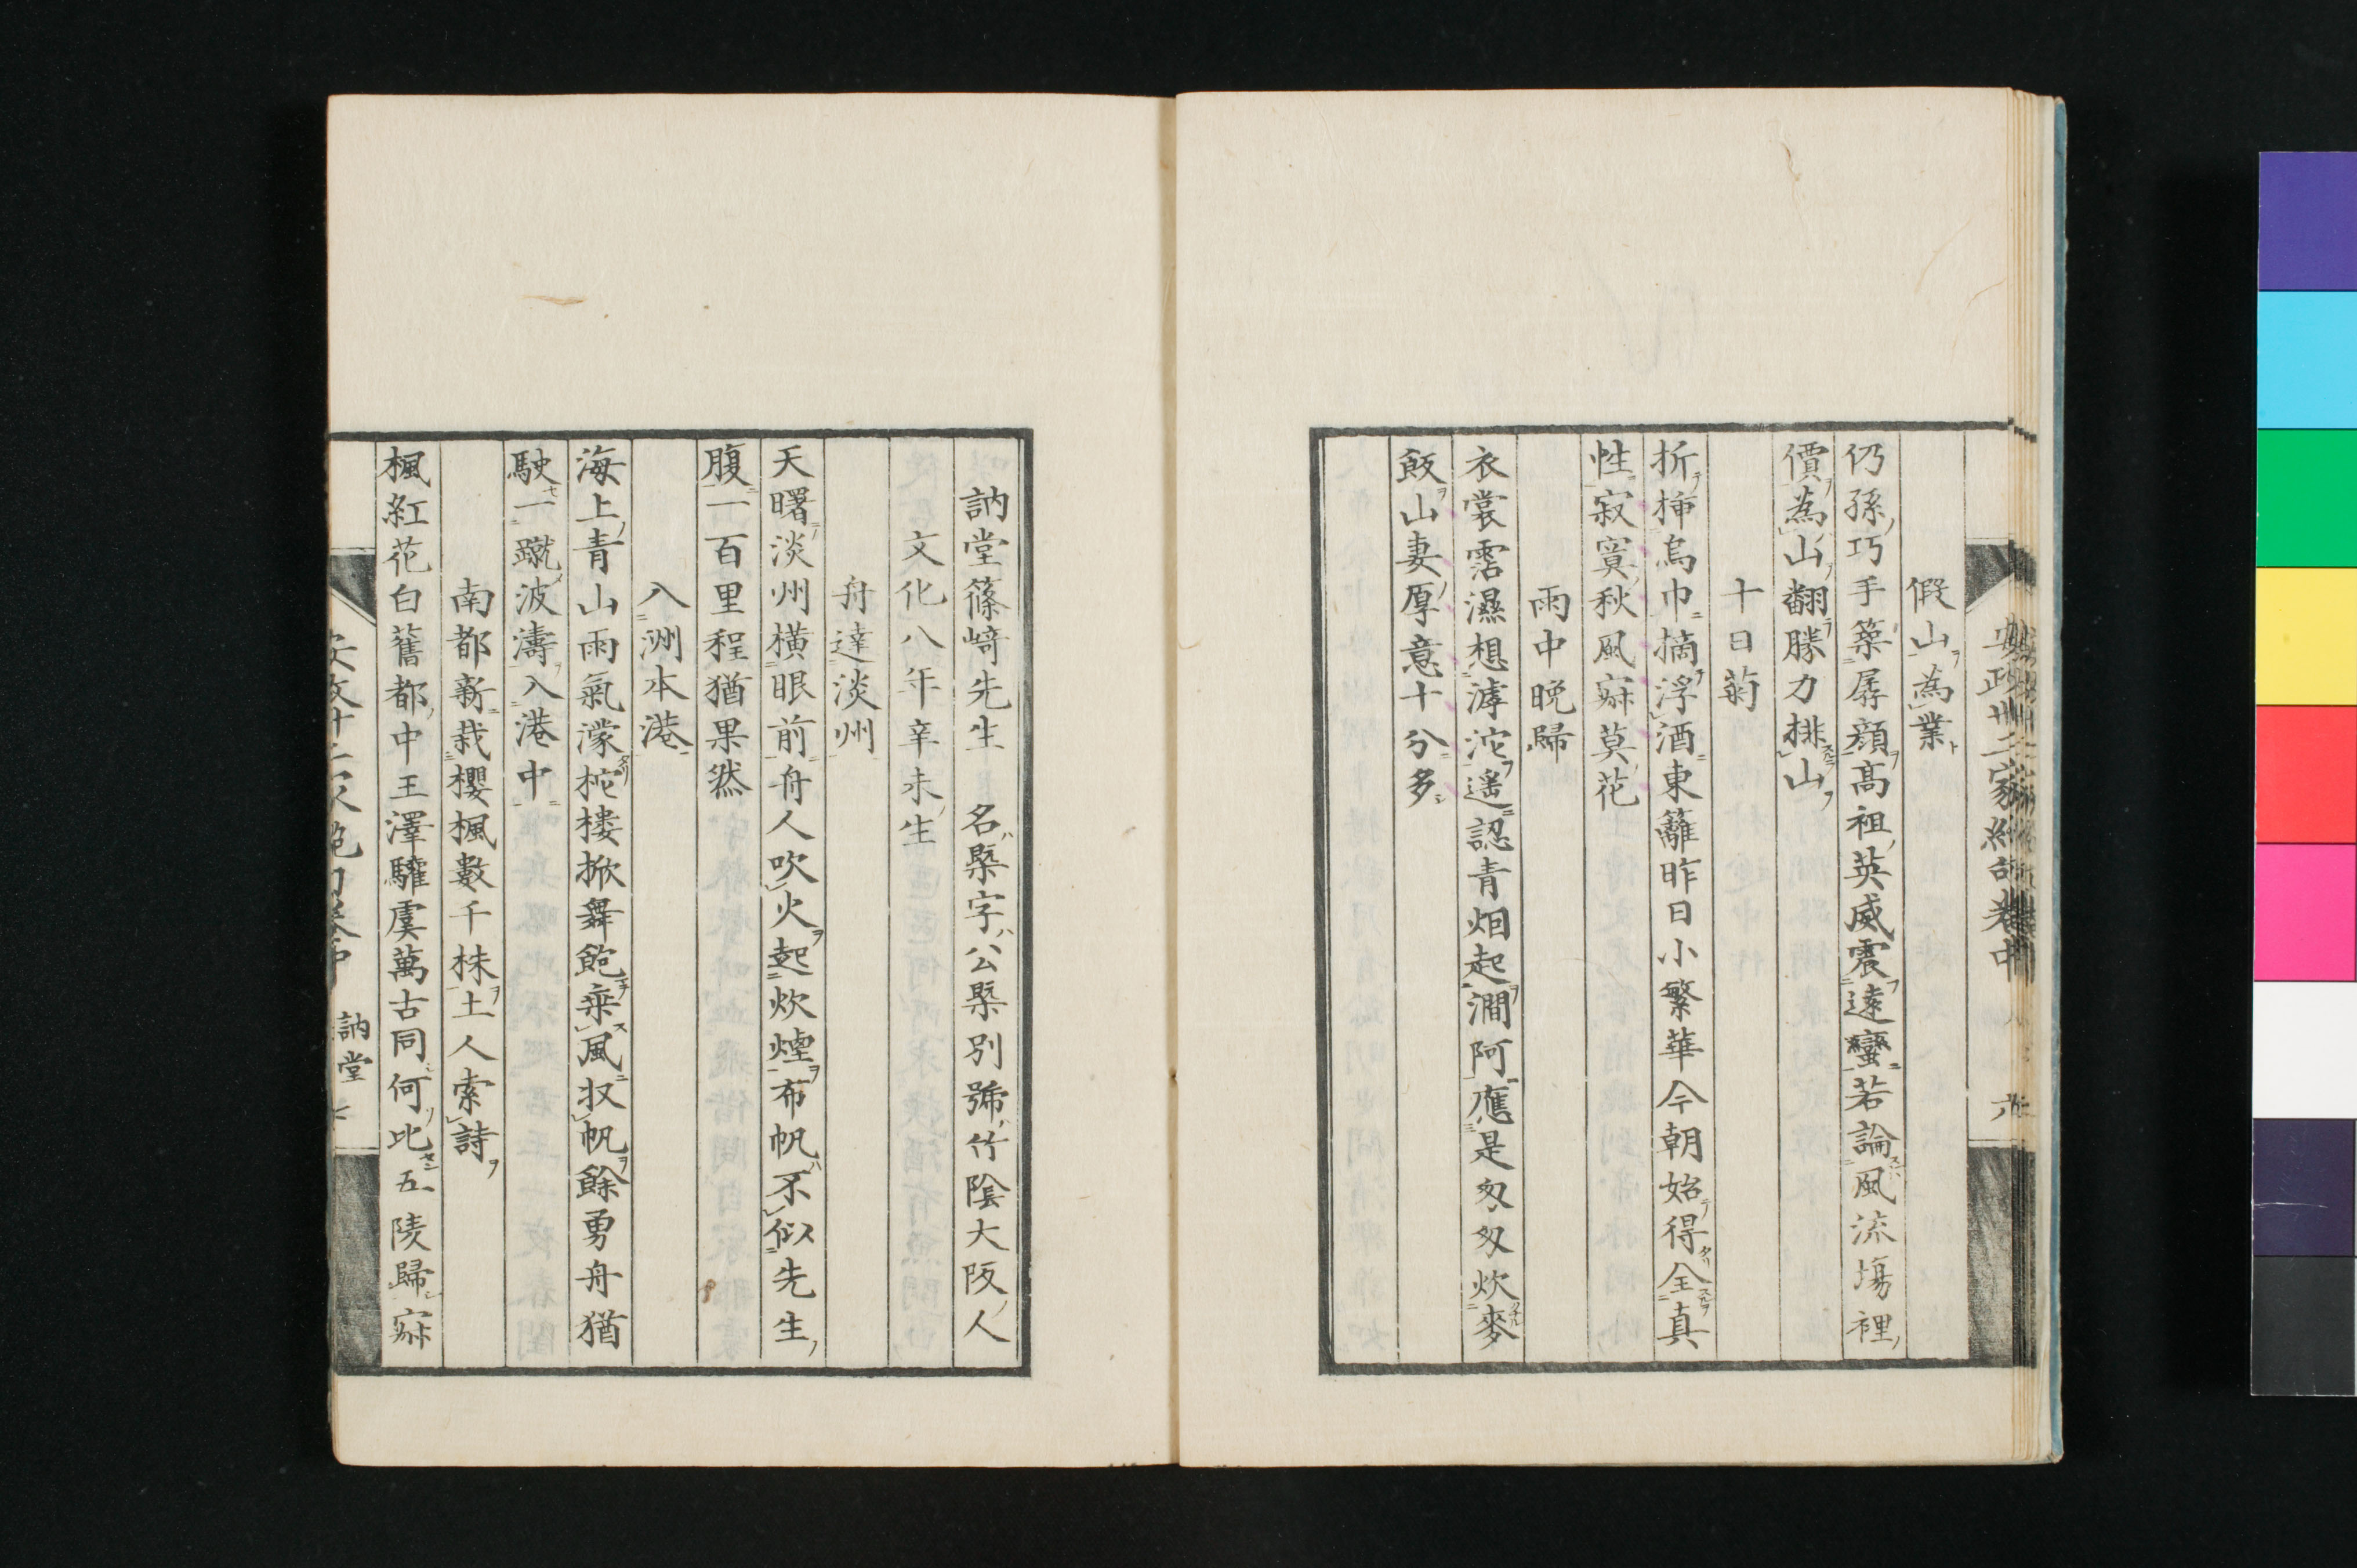 假山爲業
仍孫巧手築孱顔高祖英威震遠蠻若論風流塲裡
價爲山翻勝力排山
十日菊
折揷烏巾摘浮酒東籬昨日小繁華今朝始得全真
性寂寞秋風寂莫花
雨中晚歸
衣裳霑濕想滹沱遥認青烟起澗阿應是匆匆炊麥
飯山妻厚意十分多
訥堂篠﨑先生 名槩字公槩別號竹陰大阪人
文化八年辛未生
舟達淡州
天曙淡州橫眼前舟人吹火起炊煙布帆不似先生
腹一百里程猶果然
入洲本港
海上青山雨氣濛柁樓掀舞飽乘風収帆餘勇舟猶
駛一蹴波濤入港中
南都新栽櫻楓數千株土人索詩
楓紅花白舊都中王澤驩虞萬古同何比五陵歸寂
訥堂 七